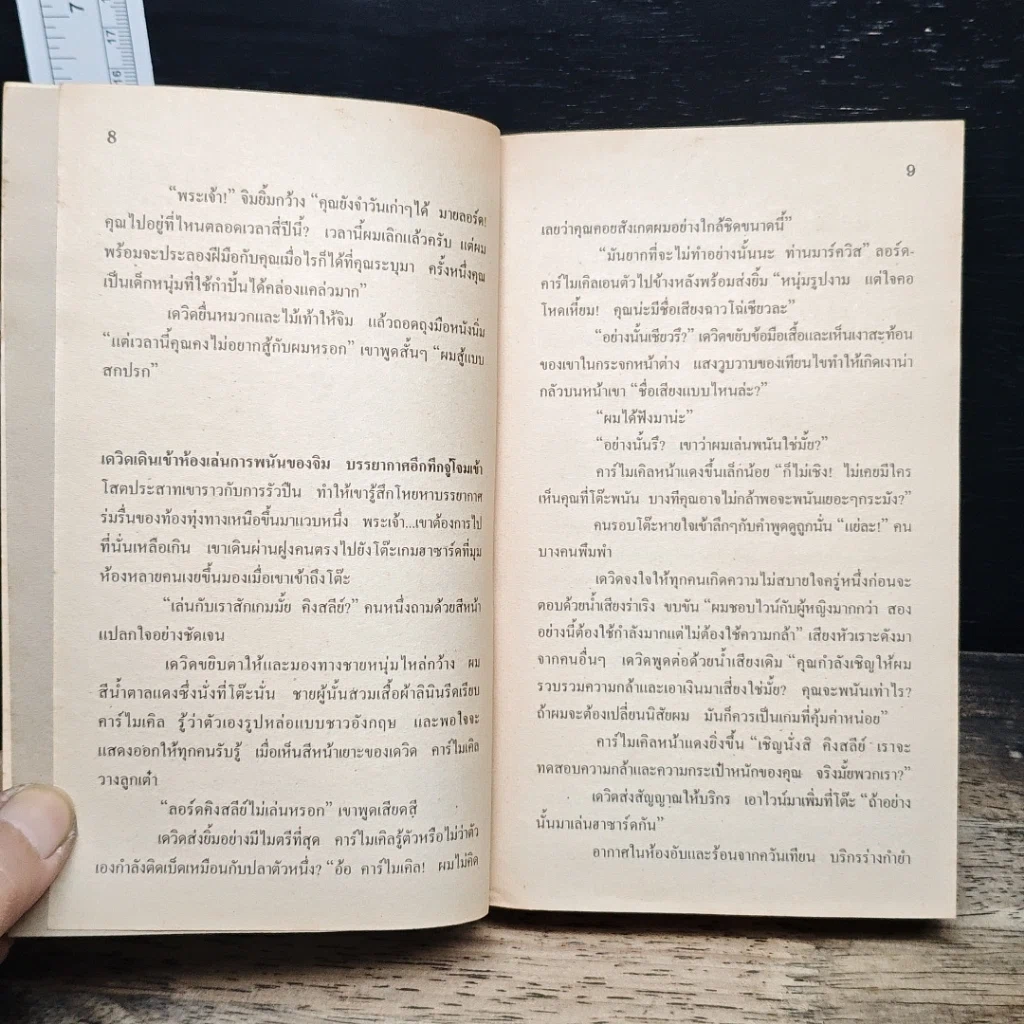 7
17
16
8
“พระเจ้า!” จิมยิ้มกว้าง “คุณยังจำวันเก่าๆได้ มายลอร์ด!
คุณไปอยู่ที่ไหนตลอดเวลาสี่ปีนี้? เวลานี้ผมเลิกแล้วครับ แต่ผม
พร้อมจะประลองฝีมือกับคุณเมื่อไรก็ได้ที่คุณระบุมา ครั้งหนึ่งคุณ
เป็นเด็กหนุ่มที่ใช้กำปั้นได้คล่องแคล่วมาก”
เดวิดยื่นหมวกและไม้เท้าให้จิม แล้วถอดถุงมือหนังนิ่ม
“แต่เวลานี้คุณคงไม่อยากสู้กับผมหรอก” เขาพูดสั้นๆ “ผมสู้แบบ
สกปรก”
เดวิดเดินเข้าห้องเล่นการพนันของจิม บรรยากาศอึกทึกจู่โจมเข้า
โสตประสาทเขาราวกับการรัวปืน ทำให้เขารู้สึกโหยหาบรรยากาศ
ร่มรื่นของท้องทุ่งทางเหนือขึ้นมาแวบหนึ่ง พระเจ้า...เขาต้องการไป
ที่นั่นเหลือเกิน เขาเดินผ่านฝูงคนตรงไปยังโต๊ะเกมฮาซาร์ดที่มุม
ห้องหลายคนเงยขึ้นมองเมื่อเขาเข้าถึงโต๊ะ
“เล่นกับเราสักเกมมั้ย คิงสลีย์?” คนหนึ่งถามด้วยสีหน้า
แปลกใจอย่างชัดเจน
เดวิดขยิบตาให้และมองทางชายหนุ่มไหล่กว้าง ผม
สีน้ำตาลแดงซึ่งนั่งที่โต๊ะนั่น ชายผู้นั้นสวมเสื้อผ้าลินินรีดเรียบ
คาร์ไมเคิล รู้ว่าตัวเองรูปหล่อแบบชาวอังกฤษ และพอใจจะ
แสดงออกให้ทุกคนรับรู้ เมื่อเห็นสีหน้าเยาะของเดวิด คาร์ไมเคิล
วางลูกเต๋า
“ลอร์ดคิงสลีย์ไม่เล่นหรอก” เขาพูดเสียดสี
เดวิดส่งยิ้มอย่างมีไมตรีที่สุด คาร์ไมเคิลรู้ตัวหรือไม่ว่าตัว
เองกำลังติดเบ็ดเหมือนกับปลาตัวหนึ่ง? “อ้อ คาร์ไมเคิล! ผมไม่คิด
9
เลยว่าคุณคอยสังเกตผมอย่างใกล้ชิดขนาดนี้”
“มันยากที่จะไม่ทำอย่างนั้นนะ ท่านมาร์ควิส” ลอร์ด-
คาร์ไมเคิลเอนตัวไปข้างหลังพร้อมส่งยิ้ม “หนุ่มรูปงาม แต่ใจคอ
โหดเหี้ยม! คุณน่ะมีชื่อเสียงฉาวโฉ่เชียวละ”
“อย่างนั้นเชียวรึ?” เดวิดขยับข้อมือเสื้อและเห็นเงาสะท้อน
ของเขาในกระจกหน้าต่าง แสงวูบวาบของเทียนไขทำให้เกิดเงาน่า
กลัวบนหน้าเขา “ชื่อเสียงแบบไหนล่ะ?”
“ผมได้ฟังมาน่ะ”
“อย่างนั้นรึ? เขาว่าผมเล่นพนันใช่มั้ย?”
คาร์ไมเคิลหน้าแดงขึ้นเล็กน้อย “ก็ไม่เชิง! ไม่เคยมีใคร
เห็นคุณที่โต๊ะพนัน บางทีคุณอาจไม่กล้าพอจะพนันเยอะๆกระมัง?”
คนรอบโต๊ะหายใจเข้าลึกๆกับคำพูดดูถูกนั่น “แย่ละ!” คน
บางคนพึมพำ
เดวิดจงใจให้ทุกคนเกิดความไม่สบายใจครู่หนึ่งก่อนจะ
ตอบด้วยน้ำเสียงร่าเริง ขบขัน “ผมชอบไวน์กับผู้หญิงมากกว่า สอง
อย่างนี้ต้องใช้กำลังมากแต่ไม่ต้องใช้ความกล้า” เสียงหัวเราะดังมา
จากคนอื่นๆ เดวิดพูดต่อด้วยน้ำเสียงเดิม “คุณกำลังเชิญให้ผม
รวบรวมความกล้าและเอาเงินมาเสี่ยงใช่มั้ย? คุณจะพนันเท่าไร?
ถ้าผมจะต้องเปลี่ยนนิสัยผม มันก็ควรเป็นเกมที่คุ้มค่าหน่อย”
คาร์ไมเคิลหน้าแดงยิ่งขึ้น “เชิญนั่งสิ คิงสลีย์ เราจะ
ทดสอบความกล้าและความกระเป๋าหนักของคุณ จริงมั้ยพวกเรา?”
เดวิดส่งสัญญาณให้บริกร เอาไวน์มาเพิ่มที่โต๊ะ “ถ้าอย่าง
นั้นมาเล่นฮาซาร์ดกัน”
อากาศในห้องอับและร้อนจากควันเทียน บริกรร่างกำยำ